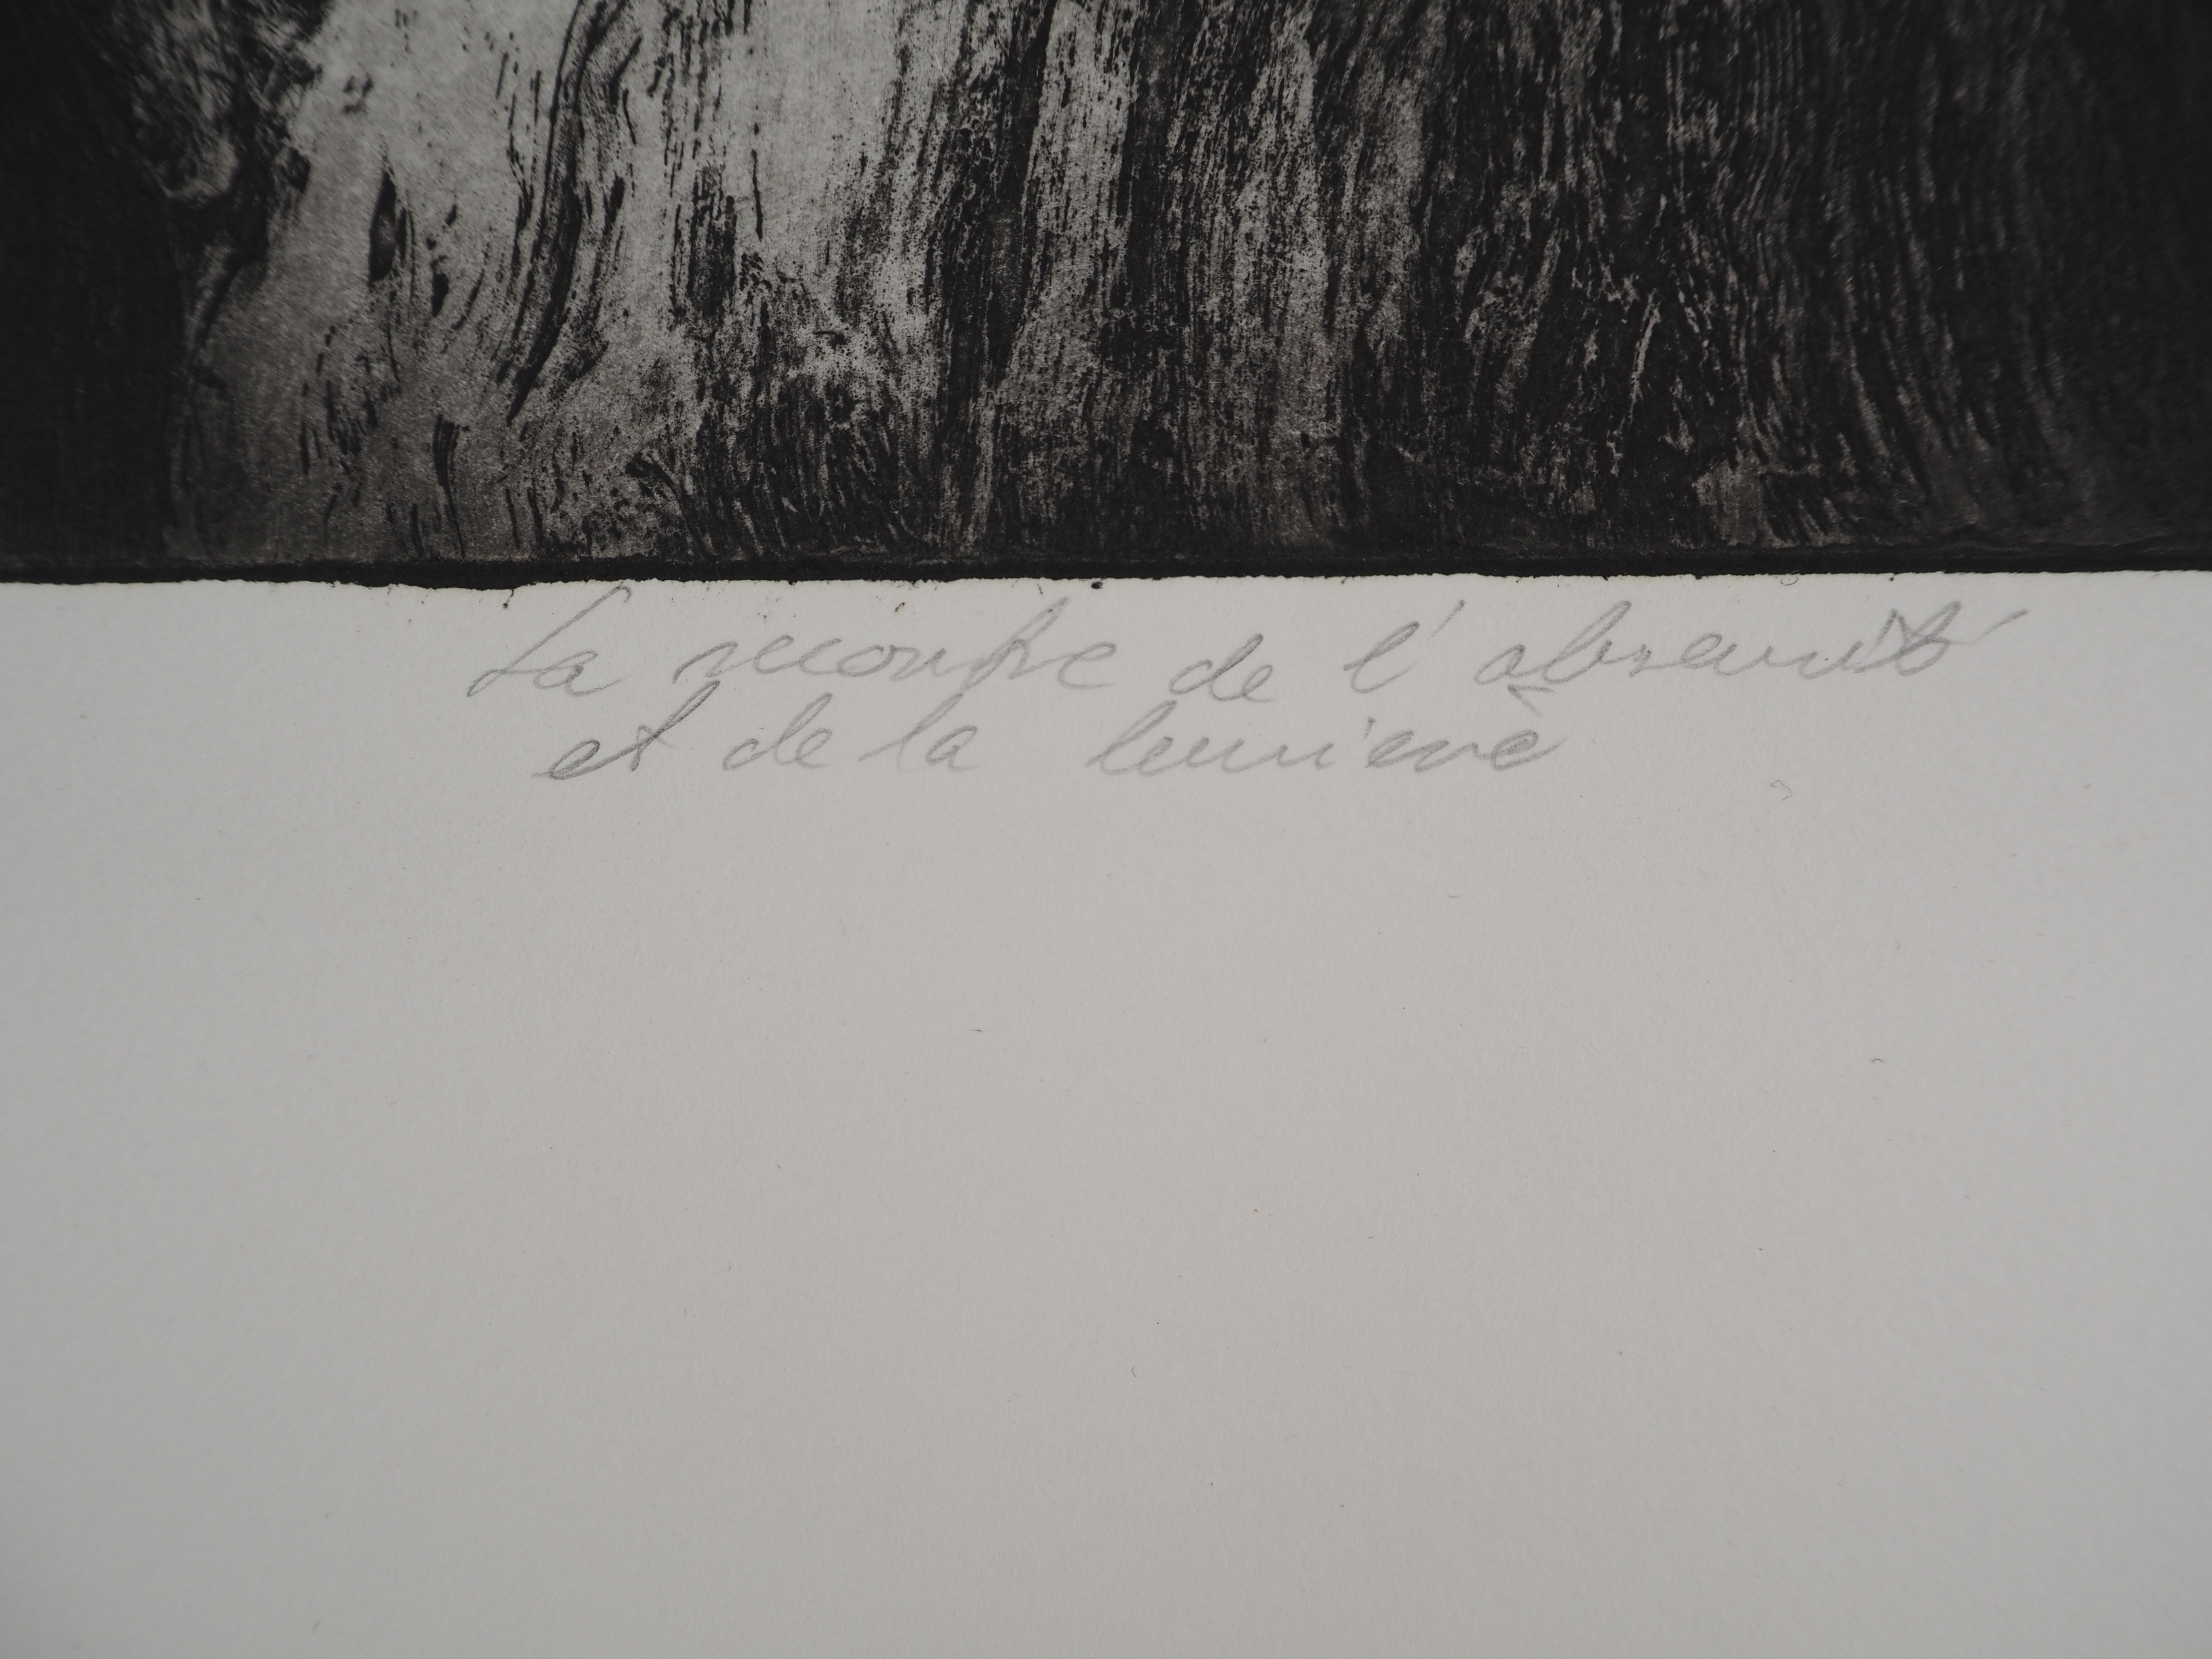 La recontre de l'obscurité
et de la lumière